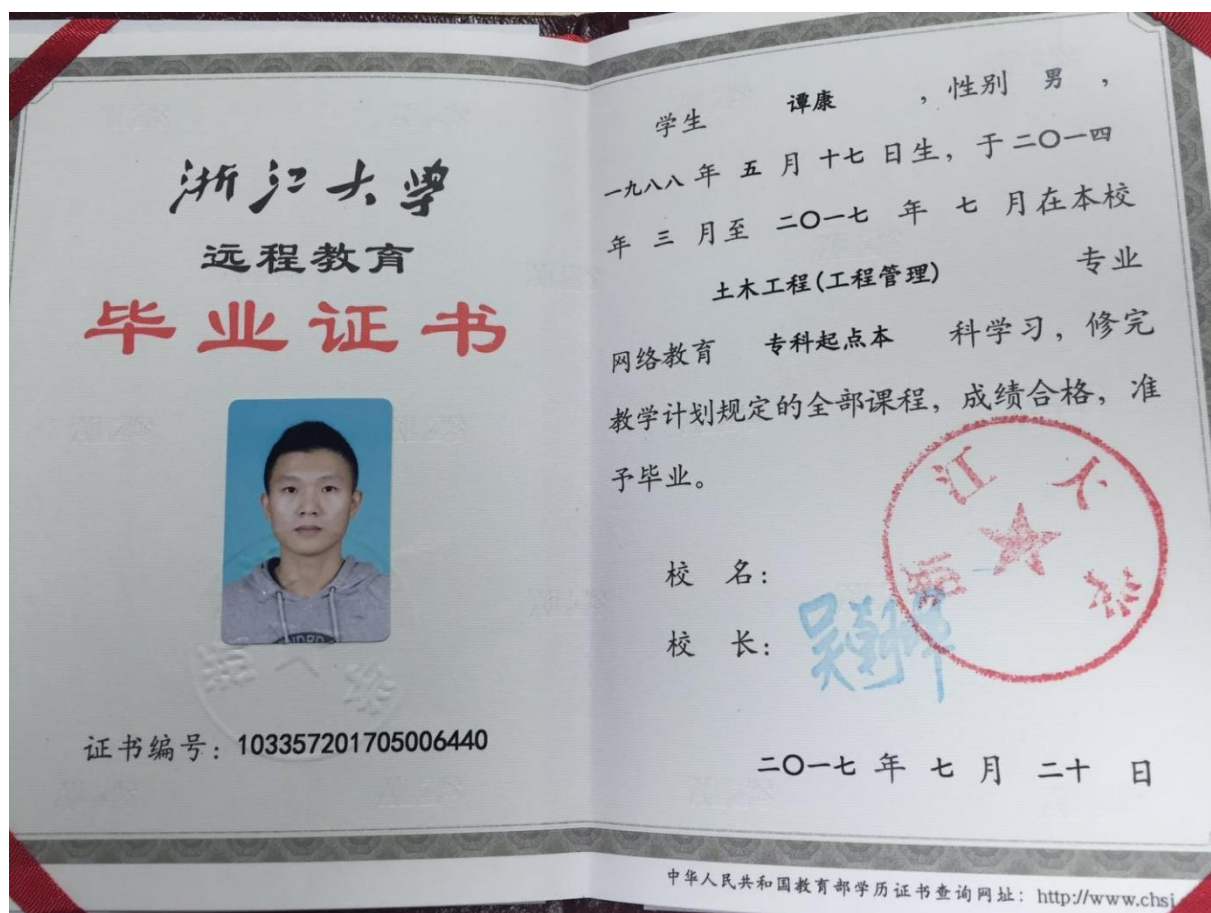 浙江大学
远程教育
毕业证书
证书编号：103357201705006440
学生 谭康 ，性别 男 ，
一九八八 年 五 月 十七 日生，于二〇一四
年 三 月至 二〇一七 年 七 月在本校
土木工程(工程管理) 专业
网络教育 专科起点本 科学习，修完
教学计划规定的全部课程，成绩合格，准
予毕业。
校 名：
浙江大学
校 长：
二〇一七 年 七 月 二十 日
中华人民共和国教育部学历证书查询网址：http://www.chsi.